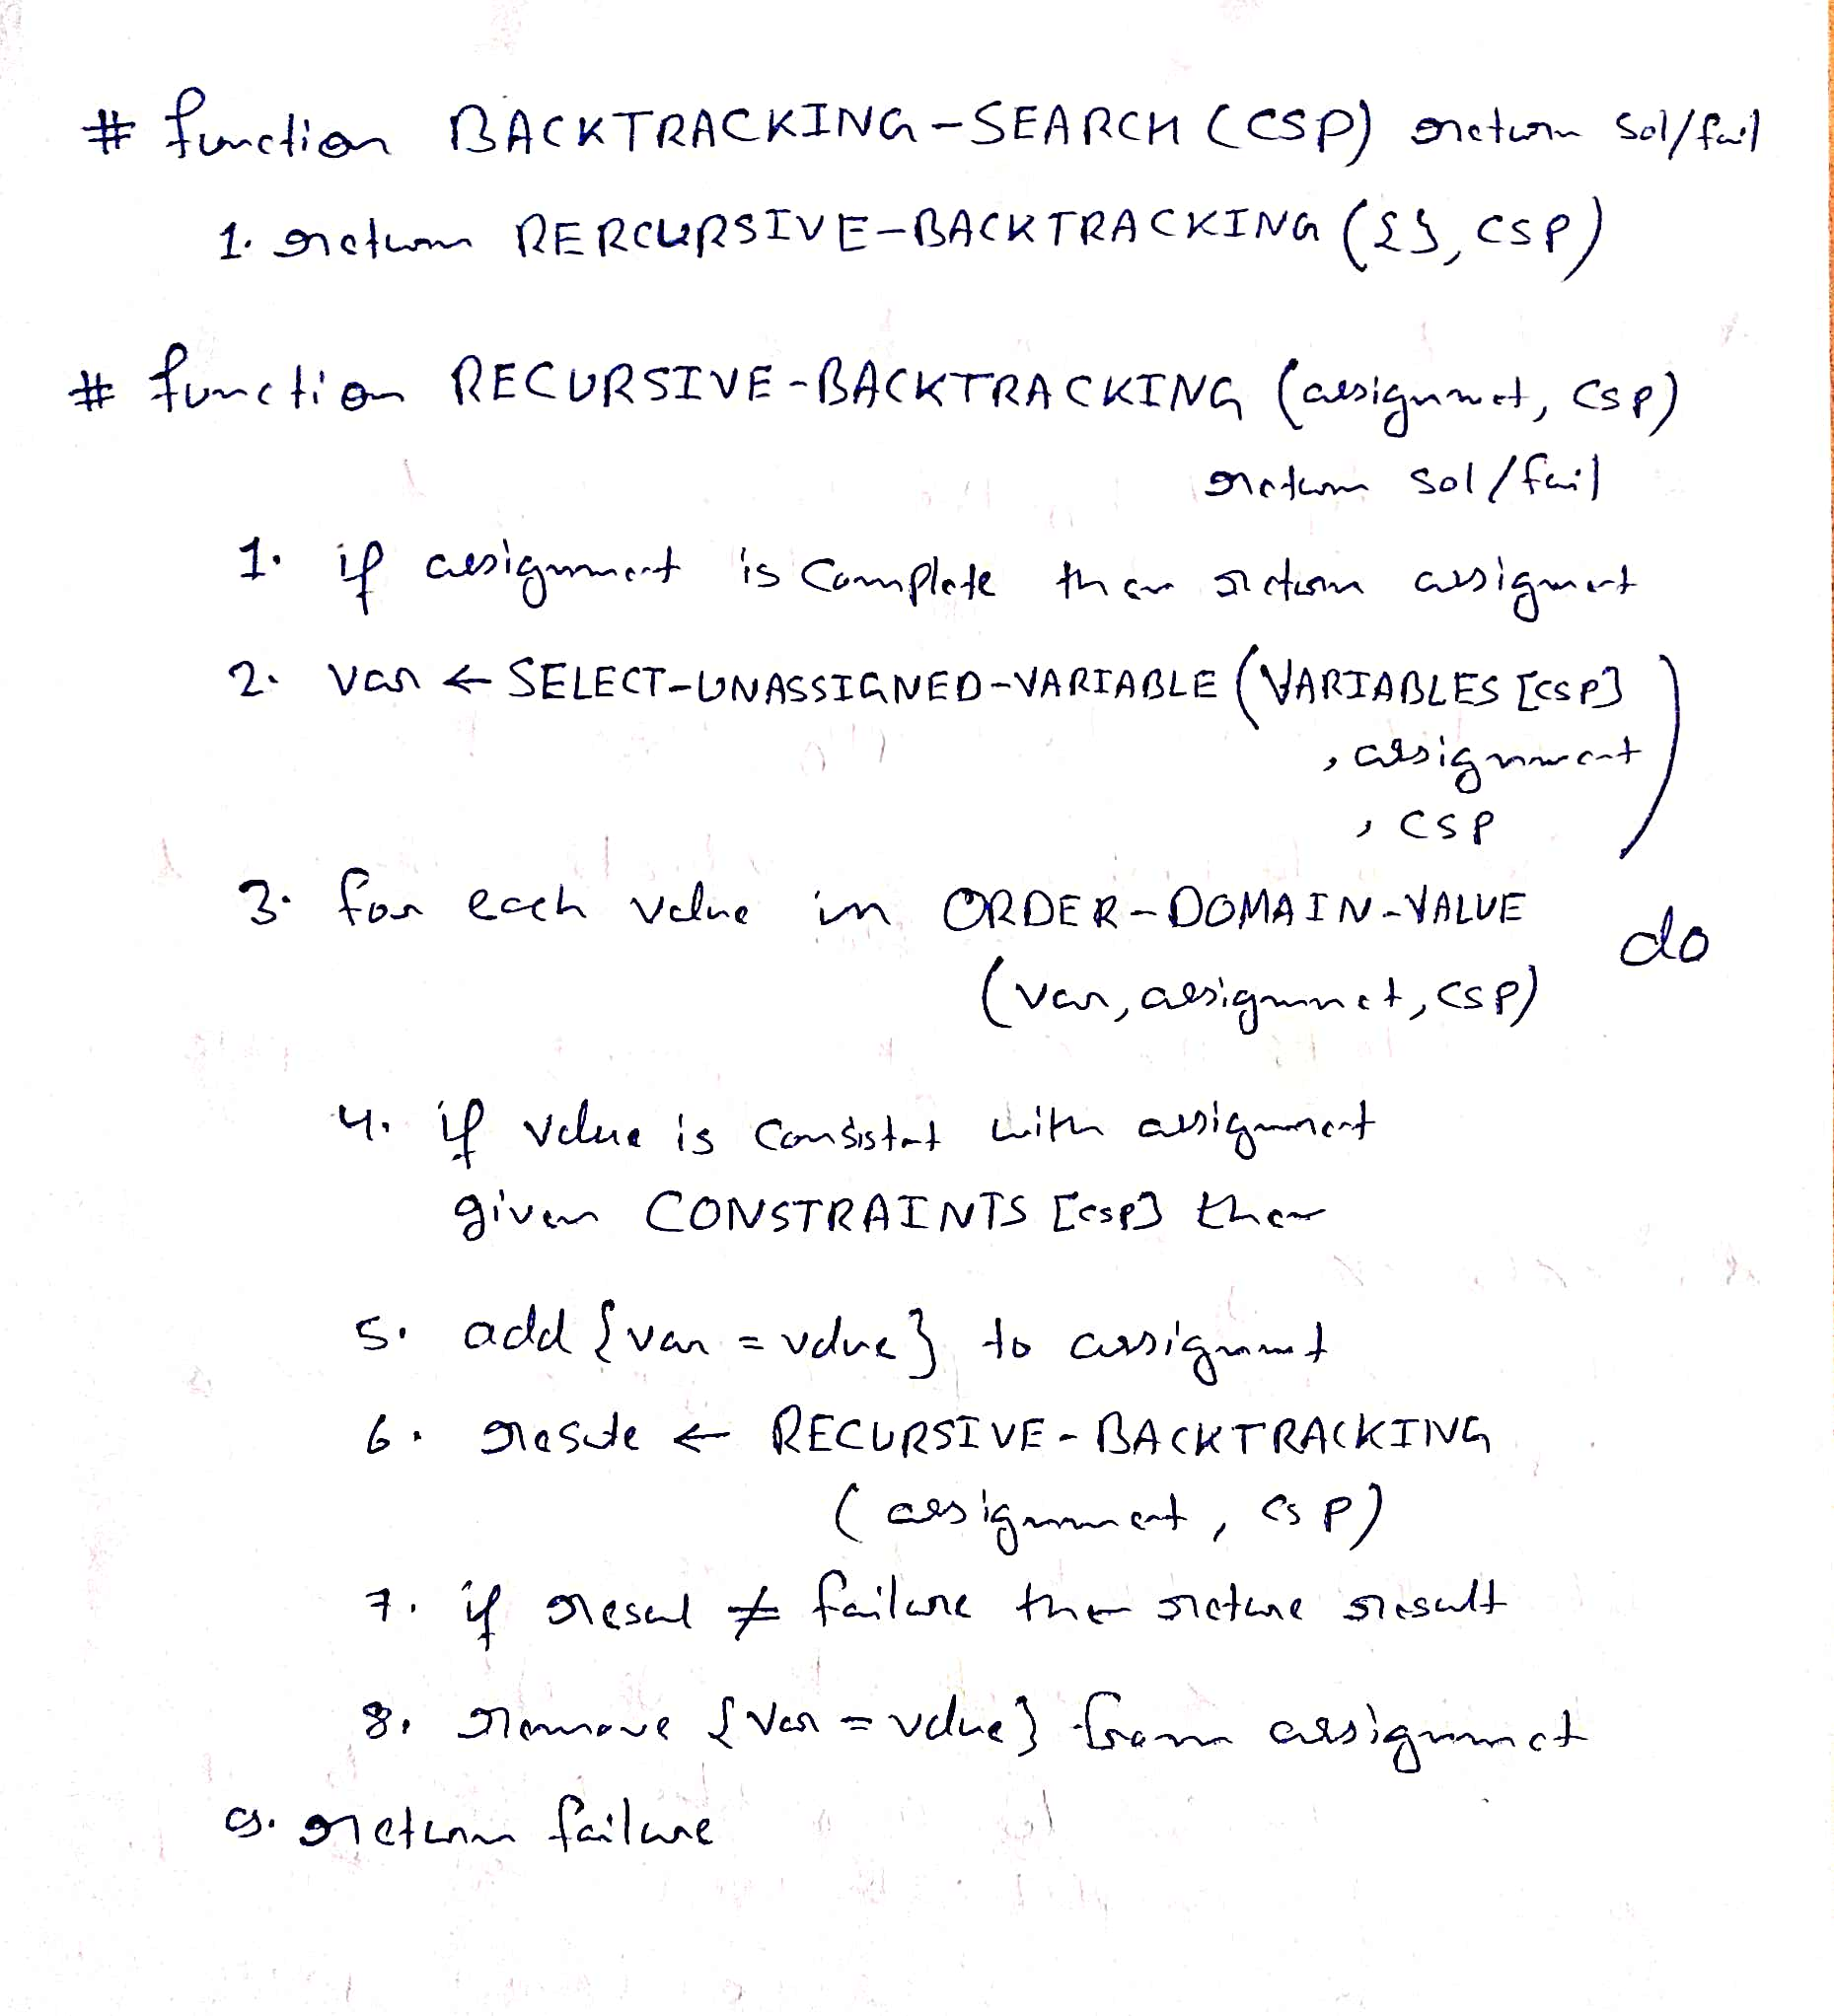 # function BACKTRACKING-SEARCH (CSP) return sol/fail
1. return RERCURSIVE-BACKTRACKING ({}, CSP)
# function RECURSIVE-BACKTRACKING (assignmet, CSP)
return sol/fail
1. if assignment is complete then return assigment
2. var ← SELECT-UNASSIGNED-VARIABLE (VARIABLES [CSP]
, assignment
, CSP )
3. for each value in ORDER-DOMAIN-VALUE
do
(var, assignmnet, CSP)
4. if value is consistat with assignment
given CONSTRAINTS [csp] then
5. add {var = value} to assignmt
6. resute ← RECURSIVE-BACKTRACKING
(assignment, CSP)
7. if resul ≠ failure then returne result
8. remove {var = value} from assignmet
9. return failure